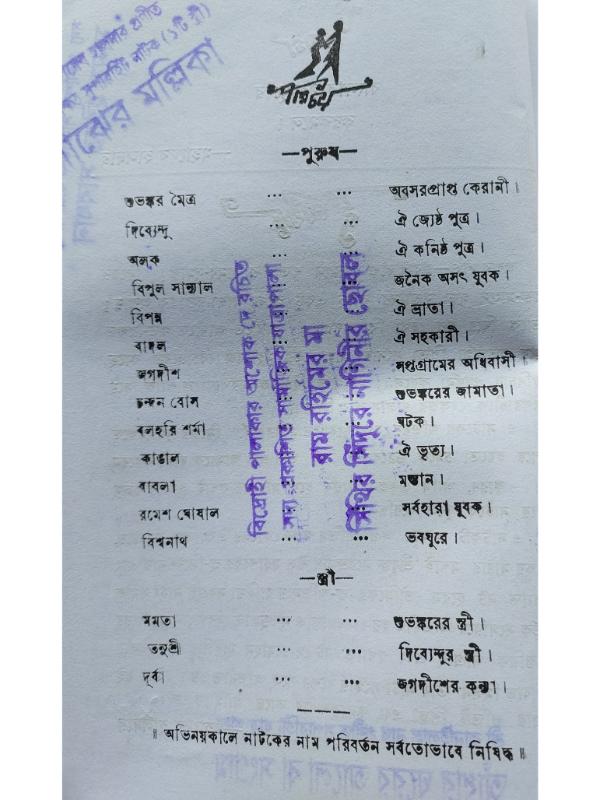 পরিচয়
—পুরুষ—
শুভঙ্কর মৈত্র ... ... অবসরপ্রাপ্ত কেরানী।
দিব্যেন্দু ... ঐ জ্যেষ্ঠ পুত্র।
অলক ঐ কনিষ্ঠ পুত্র।
বিপুল সান্যাল জনৈক অসৎ যুবক।
বিপন্ন ঐ ভ্রাতা।
বাদল ঐ সহকারী।
জগদীশ সপ্তগ্রামের অধিবাসী।
চন্দন বোস শুভঙ্করের জামাতা।
বলহরি শর্মা ঘটক।
কাঙাল ঐ ভৃত্য।
বাবলা মস্তান।
রমেশ ঘোষাল সর্বহারা যুবক।
বিশ্বনাথ ... ভবঘুরে।
—স্ত্রী—
মমতা ... ... শুভঙ্করের স্ত্রী।
তনুশ্রী ... ... দিব্যেন্দুর স্ত্রী।
দূর্বা ... ... জগদীশের কন্যা।
॥ অভিনয়কালে নাটকের নাম পরিবর্তন সর্বতোভাবে নিষিদ্ধ ॥
বিদ্রোহী পালাকার অশোক দে রচিত
সদ্য প্রকাশিত সামাজিক যাত্রাপালা
রাম রহিমের মা
সিঁথির সিঁদুরে নাগিনীর ছোবল
প্রণীত
সুপারহিট নাটক (১টি স্ত্রী)
মল্লিকা